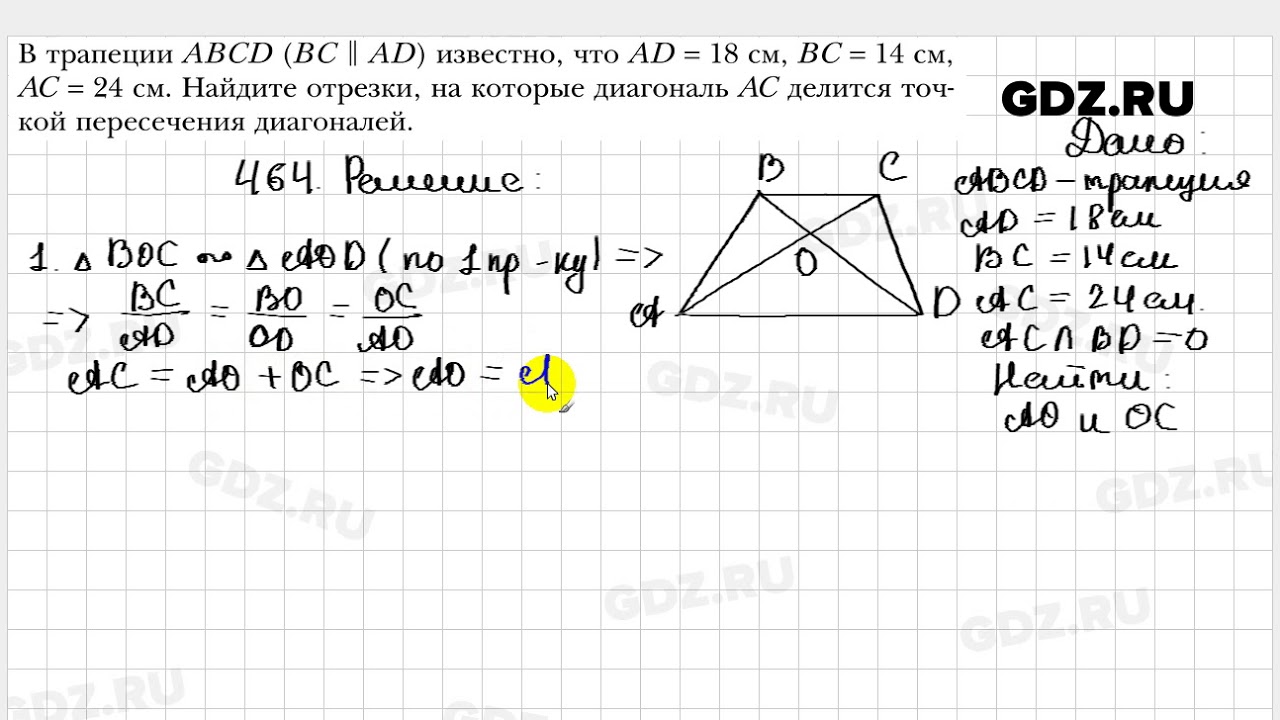 В трапеции ABCD (BC ∥ AD) известно, что AD = 18 см, BC = 14 см,
AC = 24 см. Найдите отрезки, на которые диагональ AC делится точ-
кой пересечения диагоналей.
GDZ.RU
464. Решение:
Дано:
ABCD – трапеция
AD = 18 см
BC = 14 см
AC = 24 см.
AC ∩ BD = O
Найти:
AO и OC
B C
O
A D
1. △ BOC ~ △ AOD (по 1 пр-ку) =>
=> BC/AD = BO/OD = OC/AO
AC = AO + OC => AO = A
GDZ.RU
GDZ.RU
GDZ.RU
GDZ.RU
GDZ.RU
GDZ.RU
GDZ.RU
GDZ.RU
GDZ.RU
GDZ.RU
GDZ.RU